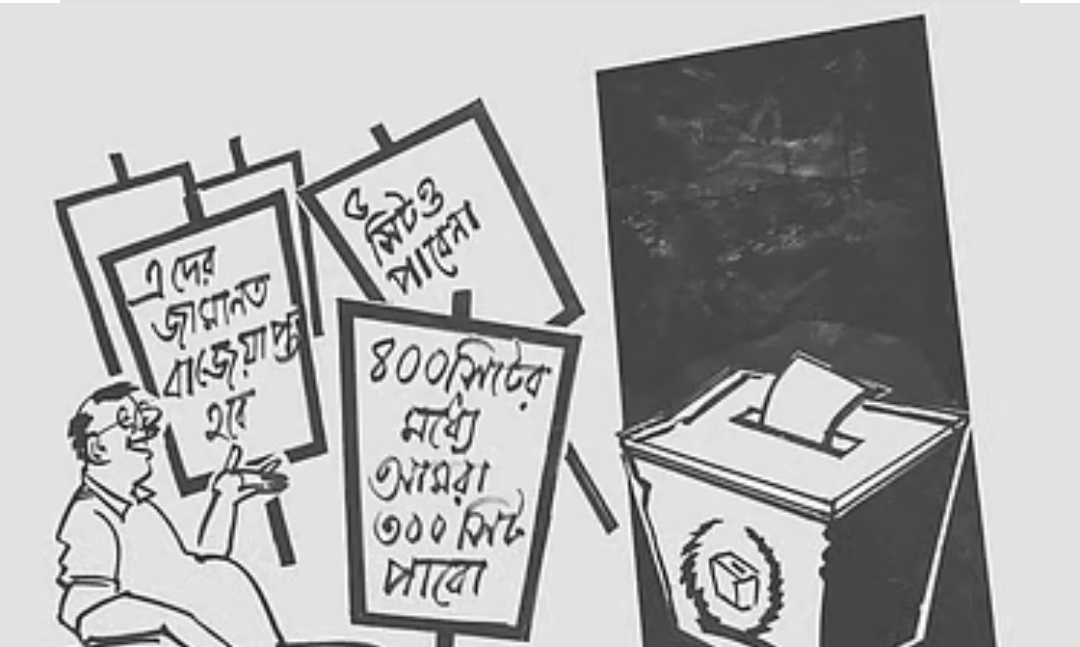 এদের
জামানত
বাজেয়াপ্ত
হবে
৫
সিটও
পাবেনা
৪০০সিটের
মধ্যে
আমরা
৩০০ সিট
পাবো